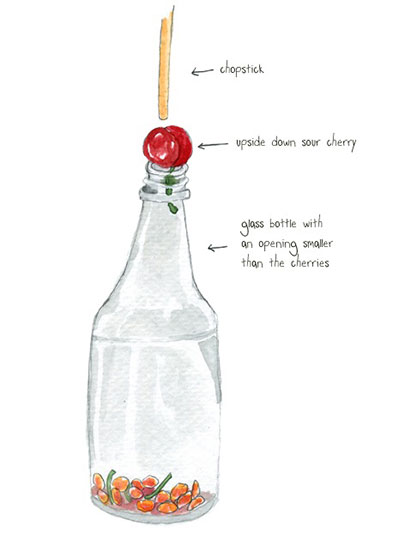 chopstick
upside down sour cherry
glass bottle with
an opening smaller
than the cherries